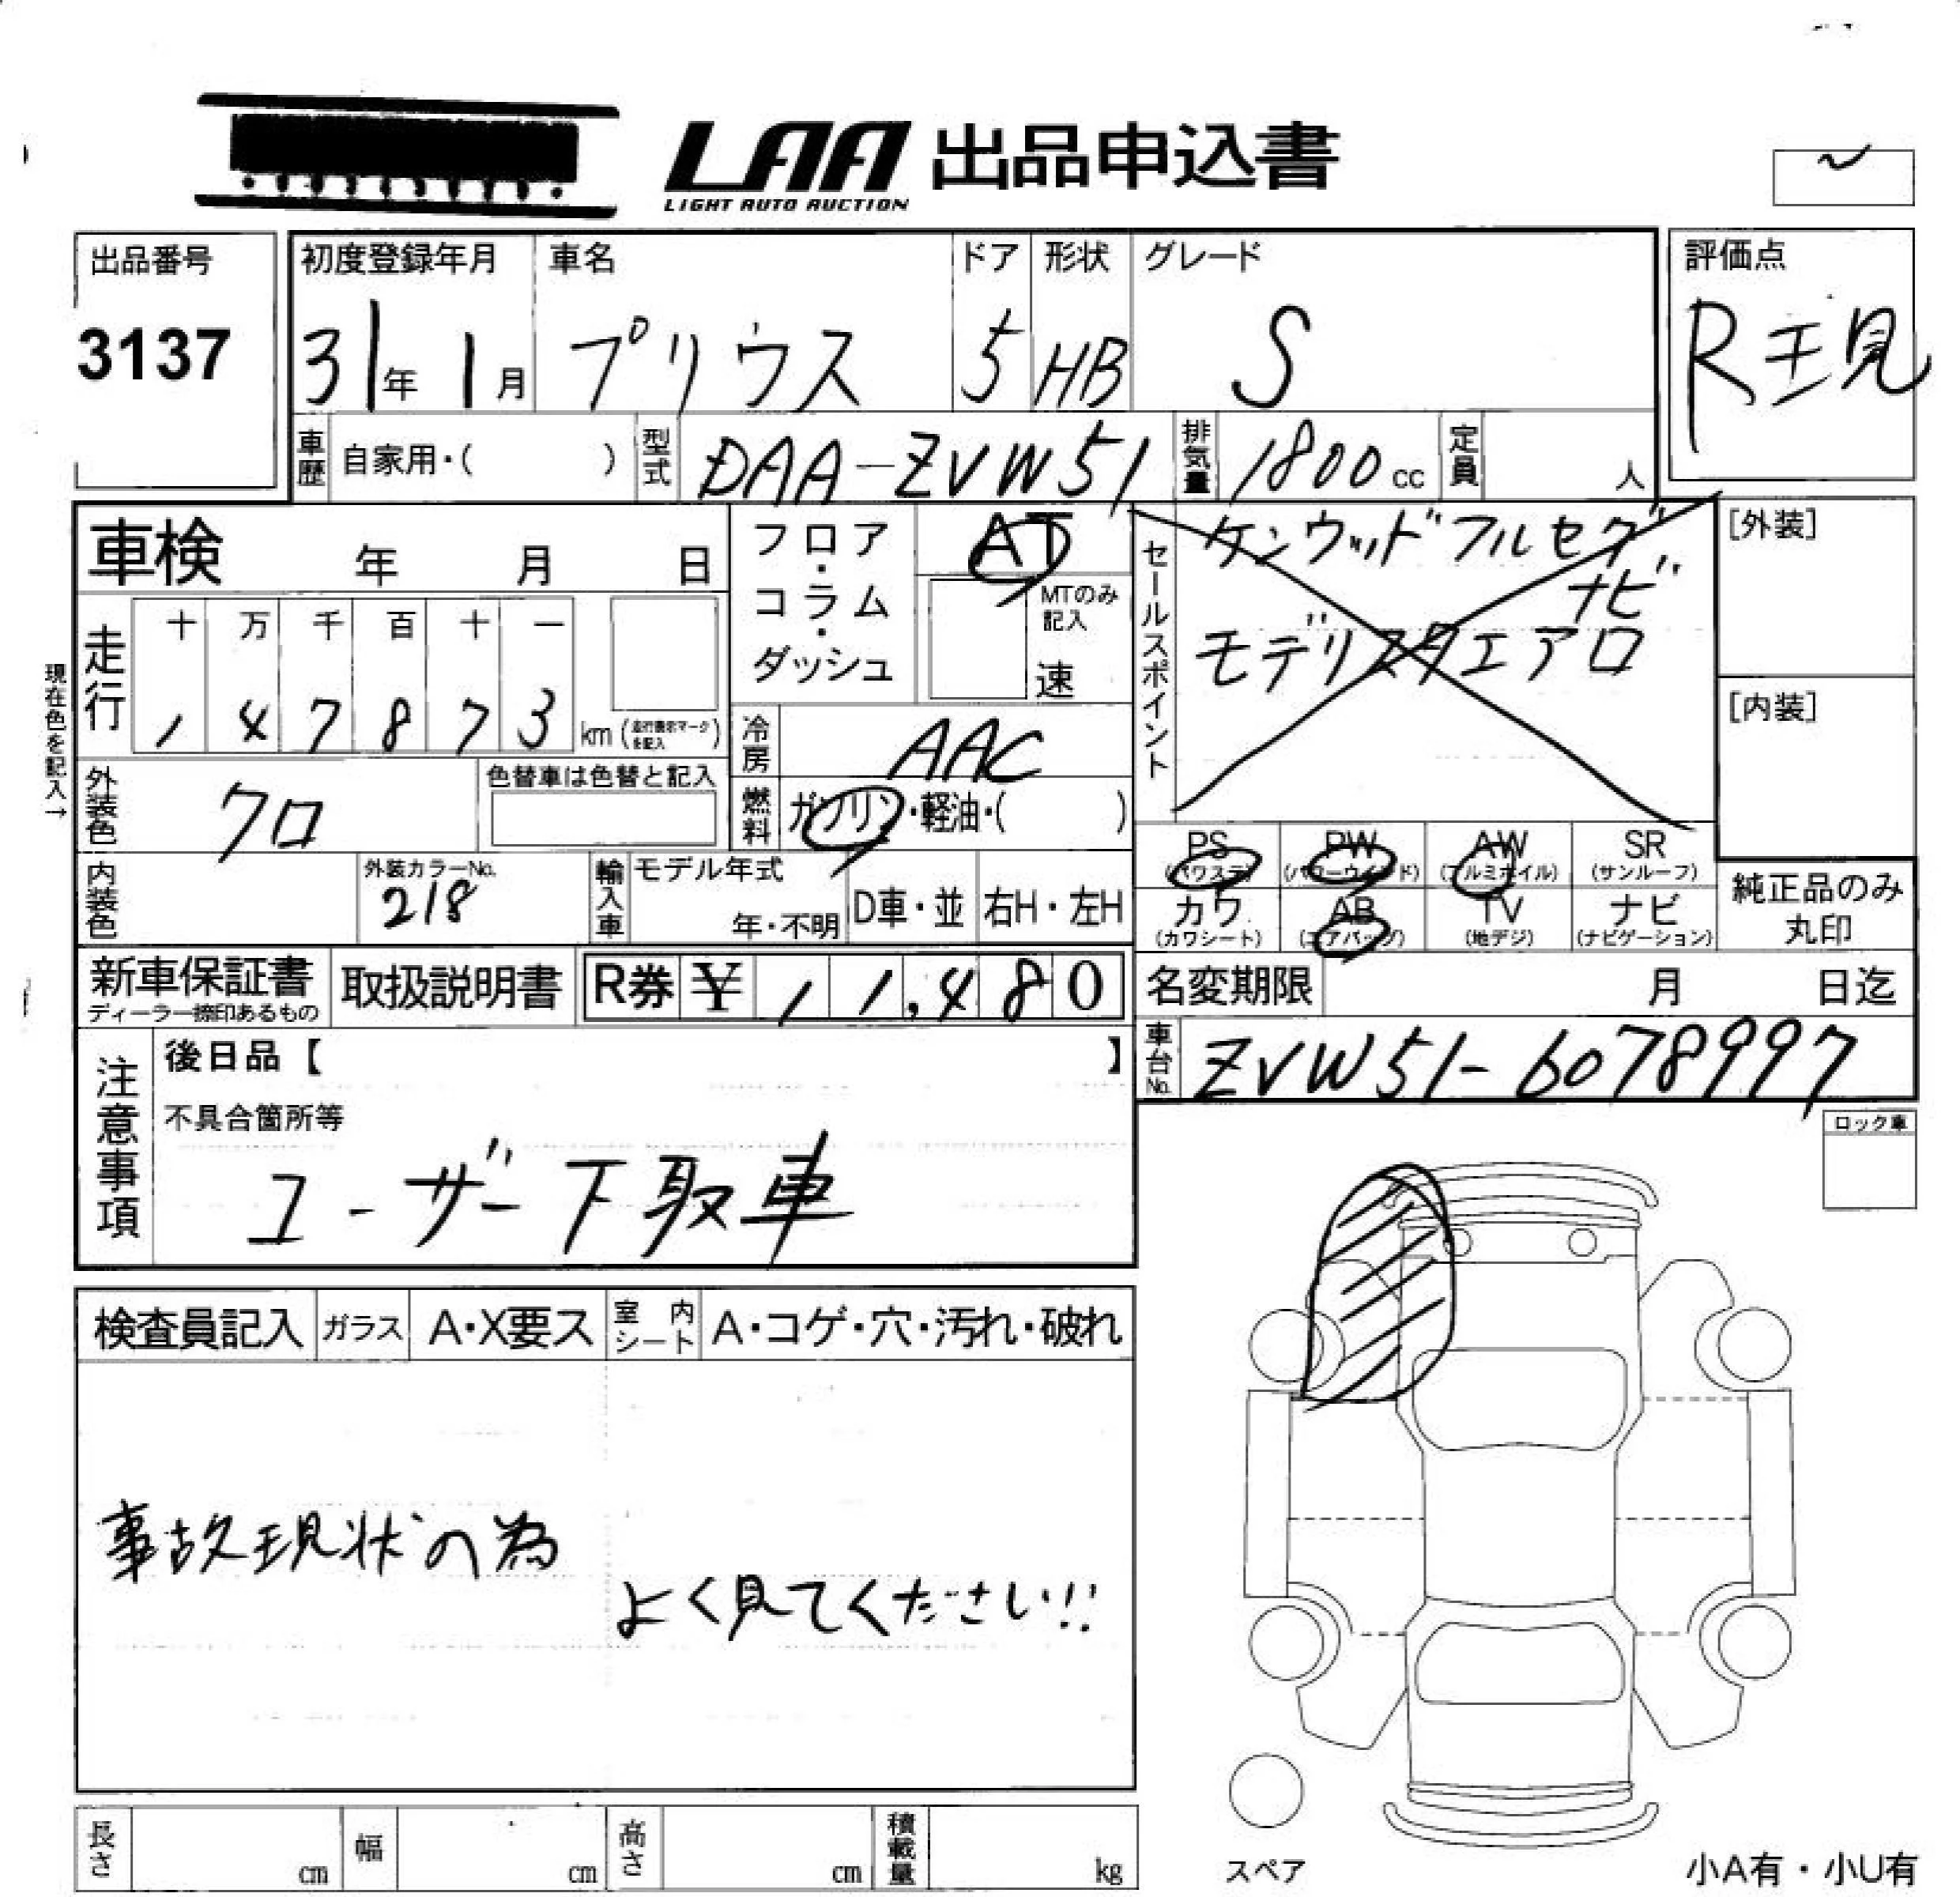 LAA 出品申込書
LIGHT AUTO AUCTION
出品番号
3137
初度登録年月
31年 1月
車名
プリウス
ドア
5
形状
HB
グレード
S
評価点
R現
車歴 自家用・( )
型式 DAA-ZVW51
排気量 1800 cc
定員 人
車検 年 月 日
フロア・コラム・ダッシュ
AT
MTのみ記入
速
セールスポイント
ケンウッドフルセグ
ナビ
モデリスタエアロ
[外装]
[内装]
走行
十 万 千 百 十 一
1 4 7 8 7 3 km (走行表示マークを記入)
現在色を記入→
冷房 AAC
燃料 ガソリン・軽油・( )
外装色 クロ
色替車は色替と記入
内装色
外装カラーNo.
218
輸入車
モデル年式
年・不明
D車・並
右H・左H
PS (パワステ)
PW (パワーウインド)
AW (アルミホイル)
SR (サンルーフ)
カワ (カワシート)
AB (エアバッグ)
TV (地デジ)
ナビ (ナビゲーション)
純正品のみ
丸印
新車保証書
ディーラー捺印あるもの
取扱説明書
R券 ¥ 11,480
名変期限 月 日迄
車台No. ZVW51-6078997
注意事項
後日品【 】
不具合箇所等
ユーザー下取車
ロック車
検査員記入
ガラス
A・X要ス
室内シート
A・コゲ・穴・汚れ・破れ
事故現状の為
よく見てください!!
長さ cm
幅 cm
高さ cm
積載量 kg
スペア
小A有・小U有